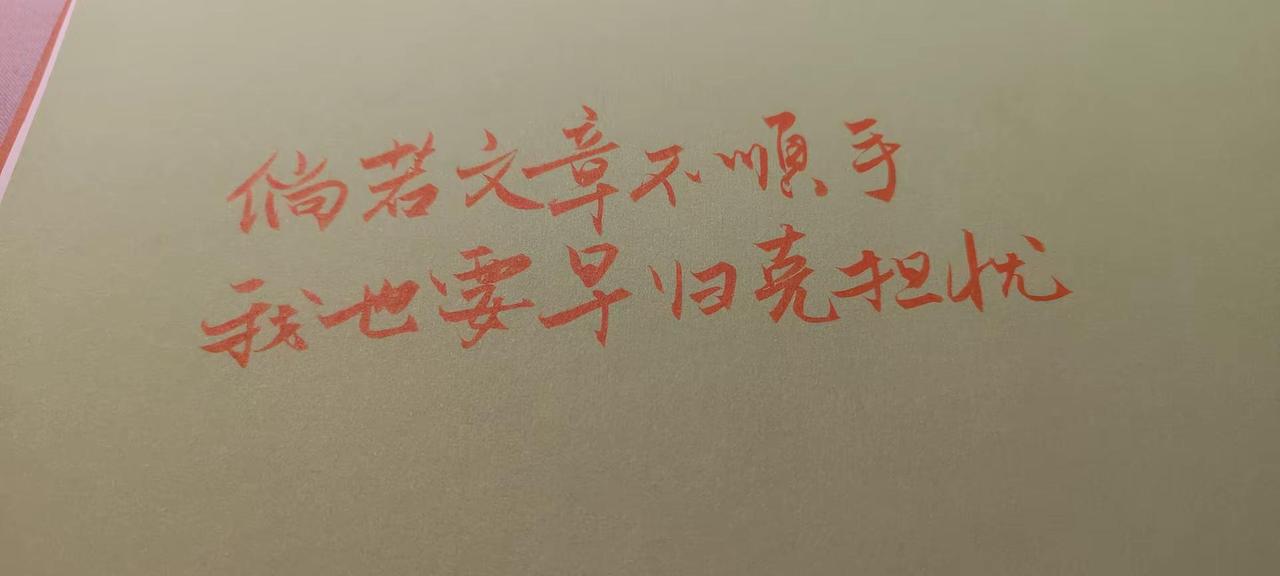 倘若文章不順手
我也要早归免担忧